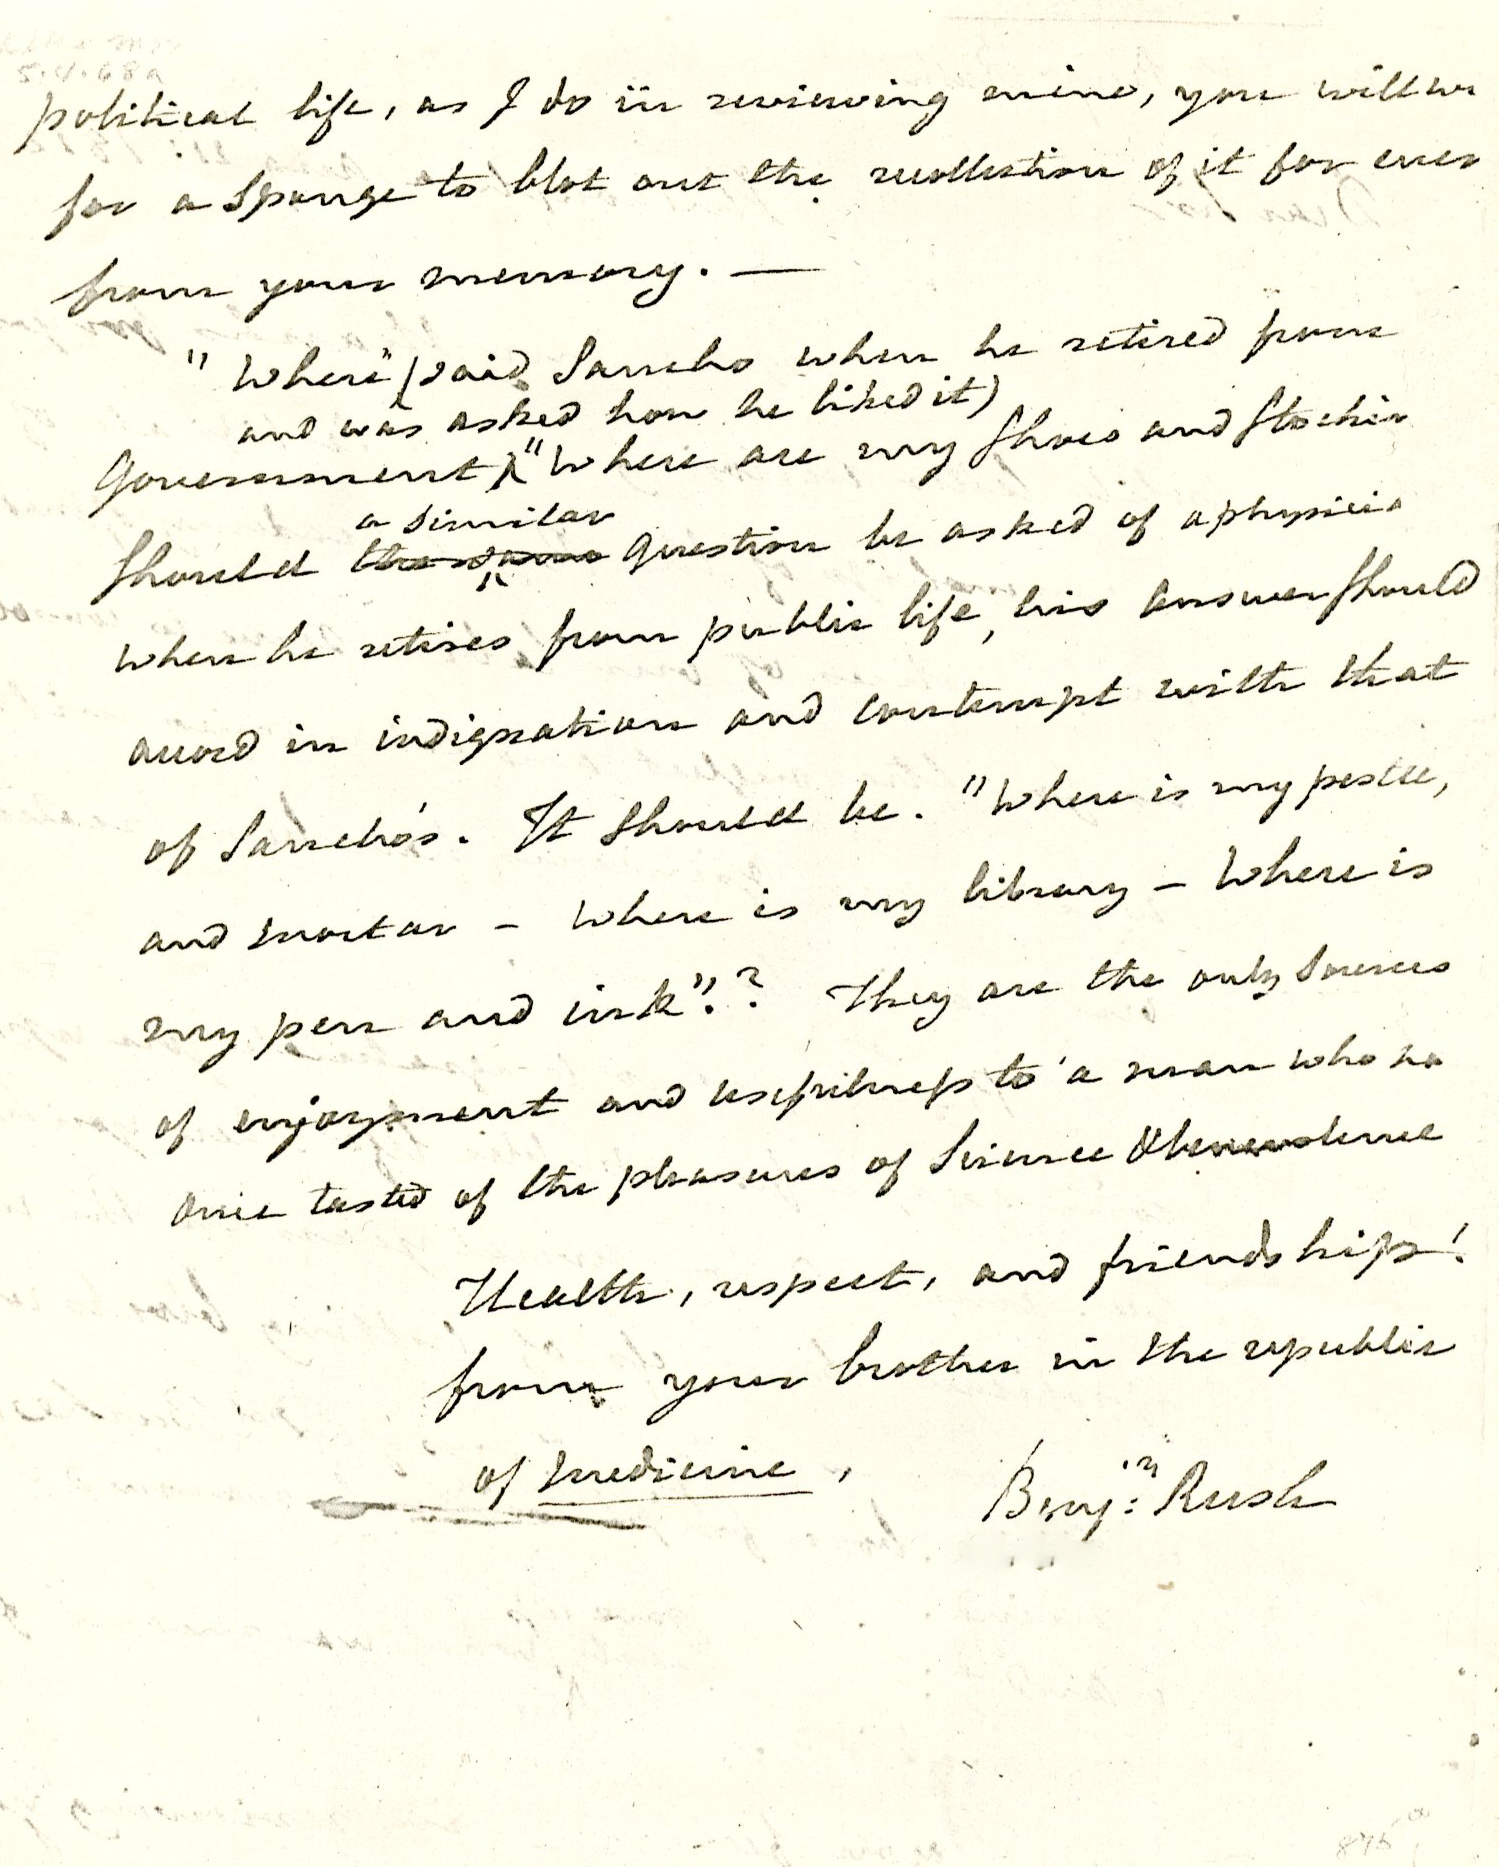 political life, as I do in reviewing mine, you will wi
for a Sponge to blot out the recollection of it for ever
from your memory. —
"Where" (said Sancho when he retired from
and was asked how he liked it)
Government) "Where are my Shoes and Stockin
a similar
Should the same Question be asked of a physicia
when he retires from public life, his Answer Should
accord in indignation and contempt with that
of Sancho's. It Should be. "Where is my pestle,
and mortar – Where is my library – Where is
my pen and ink"? They are the only Sources
of enjoyment and usefulness to a man who ha
once tasted of the pleasures of Science & benevolence
Health, respect, and friendship!
from your brother in the republic
of medicine,
Benjn: Rush